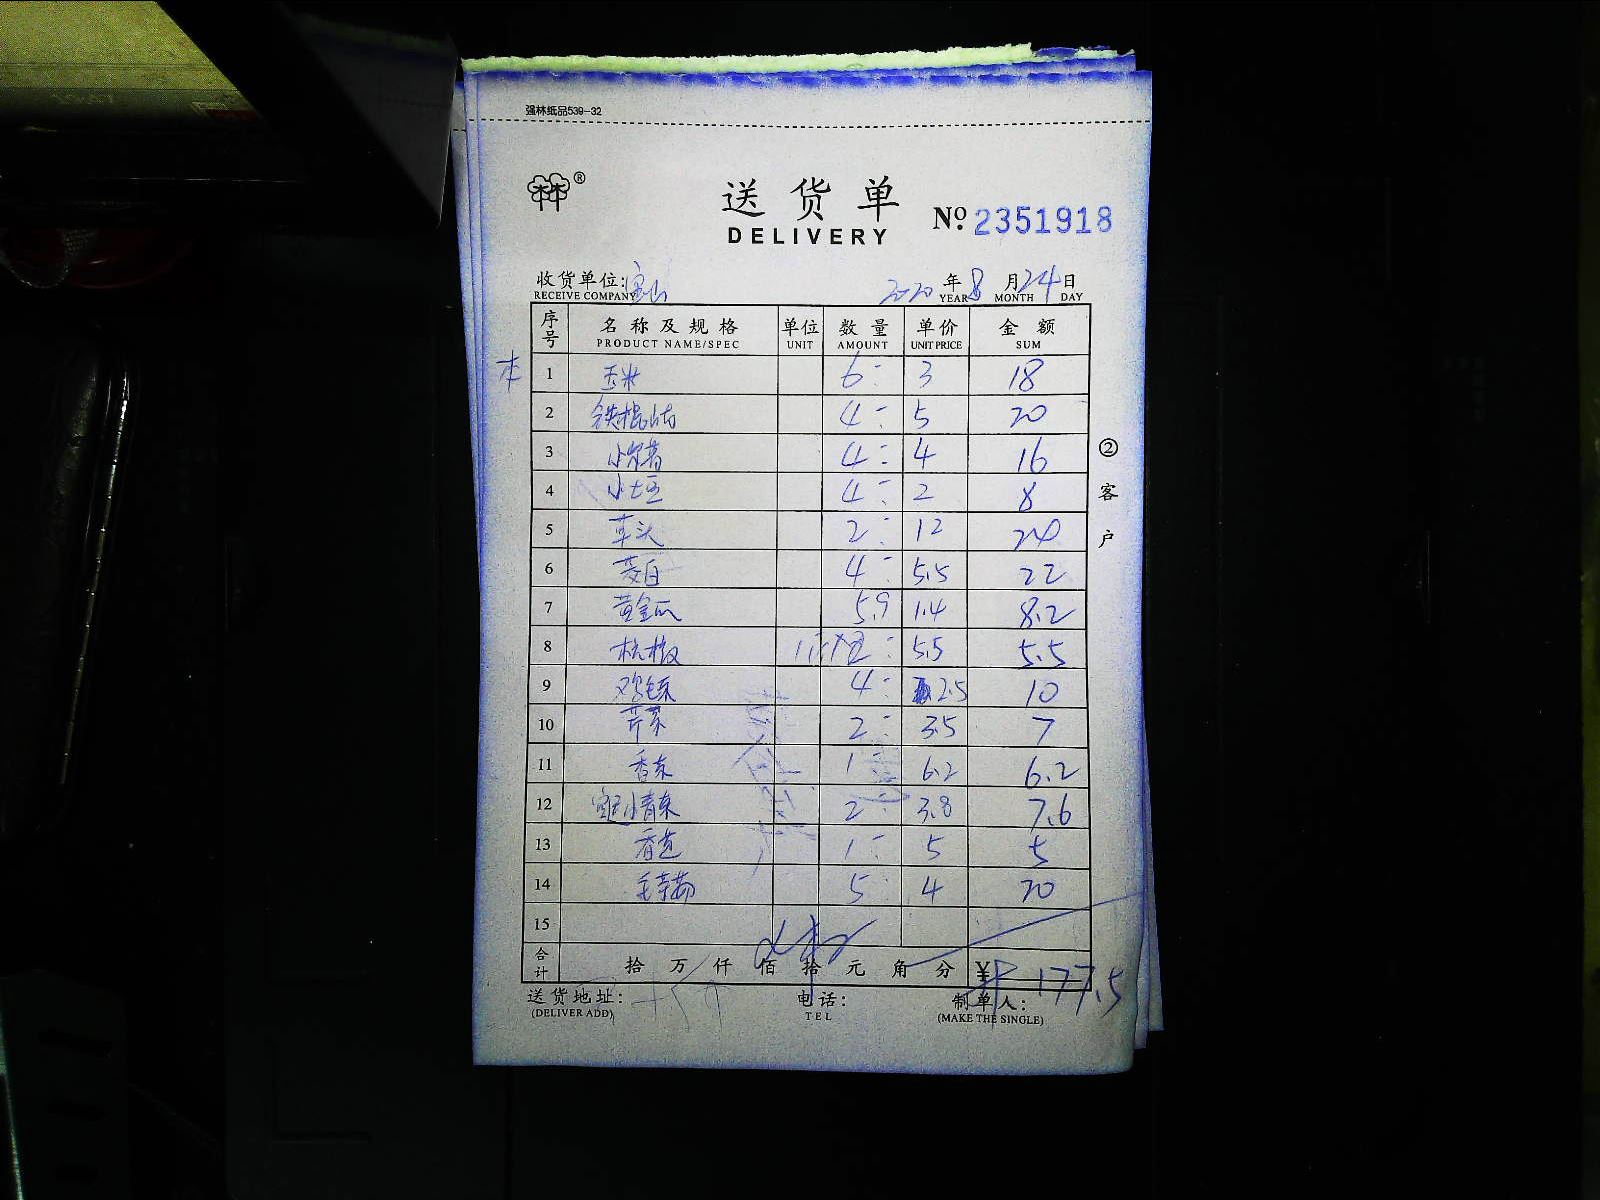 强林纸品539-32
林®
送货单
DELIVERY
№ 2351918
收货单位: 宝山 2020 年 8 月 24 日
RECEIVE COMPANY YEAR MONTH DAY
序号 名称及规格 单位 数量 单价 金额
PRODUCT NAME/SPEC UNIT AMOUNT UNIT PRICE SUM
本 1 玉米 6 3 18
2 铁棍山药 4 5 20
3 4 4 16
4 小土豆 4 2 8
5 草头 2 12 24
6 茭白 4 5.5 22
7 黄金瓜 5.9 1.4 8.2
8 杭椒 5.5 5.5
9 鸡毛菜 4 2.5 10
10 芹菜 2 3.5 7
11 香菜 1 6.2 6.2
12 小青菜 2 3.8 7.6
13 香芒 1 5 5
14 毛芋艿 5 4 20
15
合计 拾 万 仟 佰 拾 元 角 分 ¥ 177.5
送货地址: 电话: 制单人:
(DELIVER ADD) TEL (MAKE THE SINGLE)
②客户